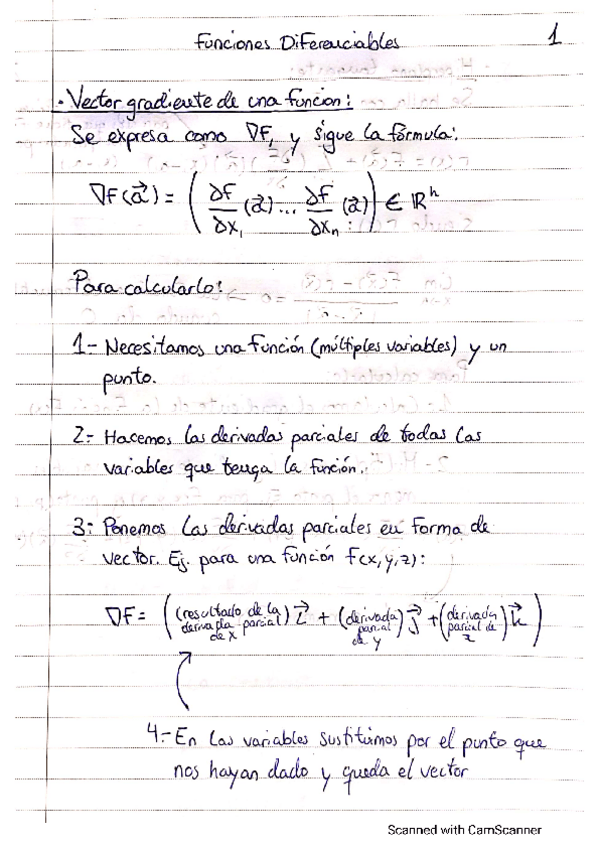 Funciones Diferenciables 1
· Vector gradiente de una función:
Se expresa como ∇F, y sigue la fórmula:
∇F(a⃗) = (∂f/∂x₁ (a⃗) ... ∂f/∂xₙ (a⃗)) ∈ ℝⁿ
Para calcularlo:
1- Necesitamos una función (múltiples variables) y un
punto.
2- Hacemos las derivadas parciales de todas las
variables que tenga la función.
3- Ponemos las derivadas parciales en forma de
vector. Ej. para una función f(x,y,z):
∇F = ((resultado de la derivada parcial de x) i⃗ + (derivada parcial de y) j⃗ + (derivada parcial de z) k⃗)
4- En las variables sustituimos por el punto que
nos hayan dado y queda el vector
Scanned with CamScanner